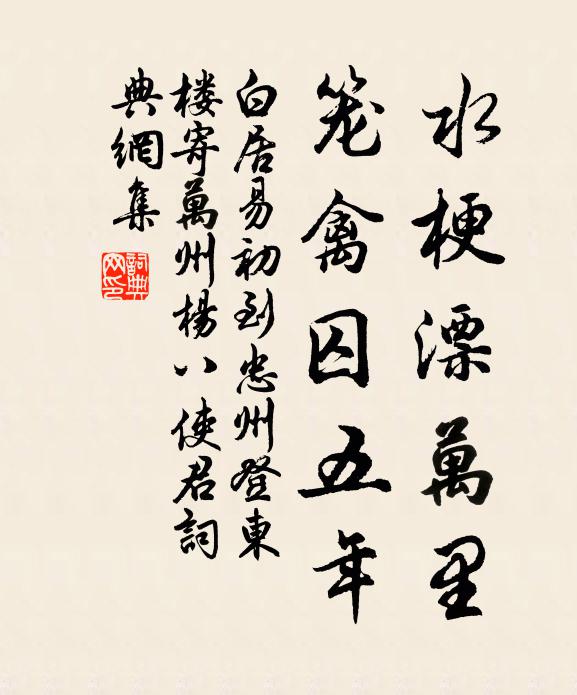 水梗漂萬里
笼禽囚五年
白居易初到忠州登東
楼寄萬州楊八使君詞
典網集
詞典网印